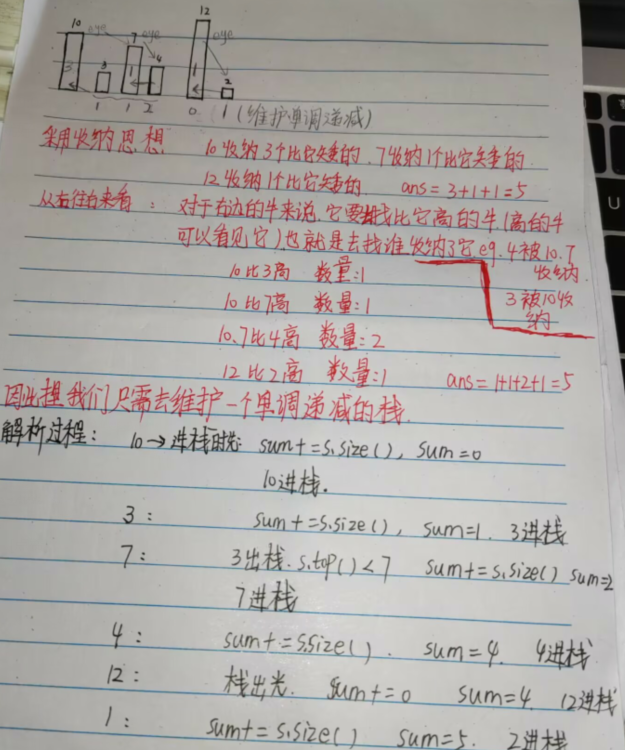 10 7 4 12 2
3 3 1 1
1 1 2 0 1 (维护单调递减)
采用收纳思想 10收纳3个比它矮的.7收纳1个比它矮的.
12收纳1个比它矮的. ans=3+1+1=5
从左往右来看: 对于右边的牛来说,它要找比它高的牛.(高的牛
可以看见它)也就是去找谁收纳了它.eg.4被10.7
收纳.
10比3高 数量:1
3被10收
纳
10比7高 数量:1
10.7比4高 数量:2
12比2高 数量:1 ans=1+1+2+1=5
因此 我们只需去维护一个单调递减的栈.
解析过程: 10→进栈时 sum+=s.size(), sum=0
10进栈.
3: sum+=s.size(), sum=1. 3进栈
7: 3出栈.s.top()<7 sum+=s.size() sum=2
7进栈
4: sum+=s.size(). sum=4. 4进栈
12: 栈出光. sum+=0 sum=4. 12进栈
1: sum+=s.size() sum=5. 2进栈